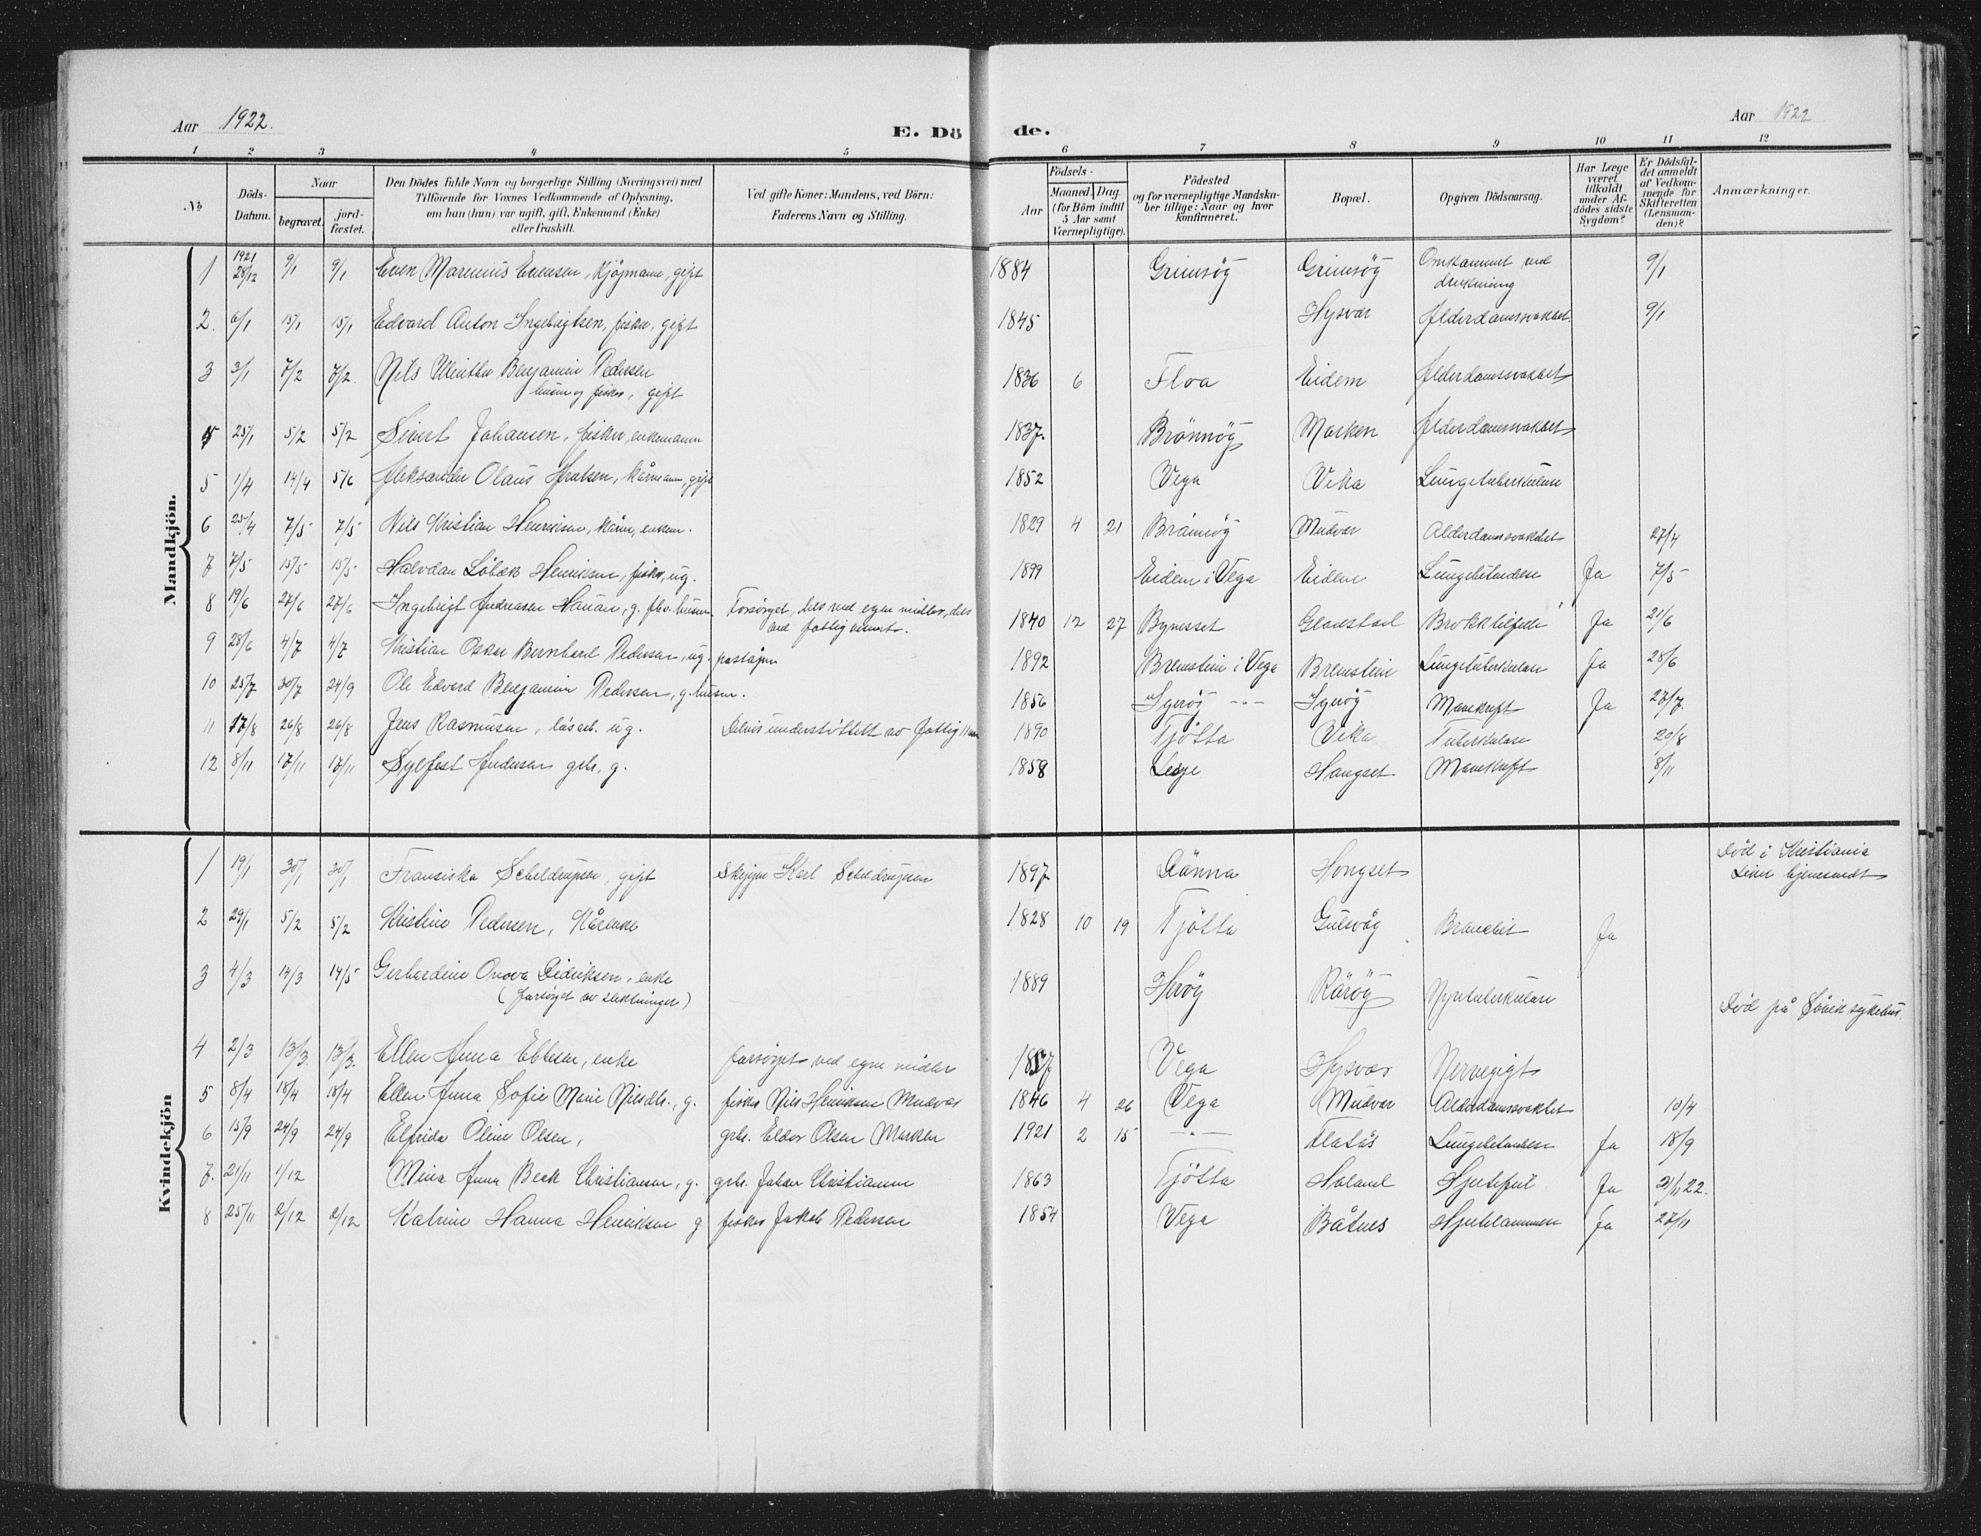 Aar 1922.
E. Dö de.
Aar 1922
1 2 3 4 5 6 7 8 9 10 11 12
No
Döds-Datum.
Naar
begravet.
jord-fæstet.
Den Dödes fulde Navn og borgerlige Stilling (Næringsvei) med
Tilföiende for Voxnes Vedkommende af Oplysning,
om han (hun) var ugift, gift, Enkemand (Enke)
eller fraskilt.
Ved gifte Koner: Mandens, ved Börn:
Faderens Navn og Stilling.
Födsels-
Aar
Maaned. Dag.
(for Börn indtil
5 Aar samt
Værnepligtige).
Födested
og for værnepligtige Mandska-
ber tillige: Naar og hvor
konfirmeret.
Bopæl.
Opgiven Dödsaarsag.
Har Læge
været
tilkaldt
under Af-
dödes sidste
Sygdom?
Er Dödsfal-
det anmeldt
af Vedkom-
mende for
Skifteretten
(Lensman-
den)?
Anmærkninger.
Mandkjön.
1 1921 28/12 9/1 9/1 Even Marenius Evensen, kjøpmann, gift 1884 Grimsöy Grimsöy Omkommet ved drukning 9/1
2. 6/1 15/1 15/1 Edvard Anton Ingebrigtsen, fisker, gift 1845 Hysvær Alderdomssvakhet 9/1
3 3/1 7/2 7/2. Nils Benjamin Pedersen
husm og fisker, gift 1836 6 Floa Eidem Alderdomssvakhet
25/1 5/2 5/2 Sivert Johansen, fisker, enkemann 1837. Brönnöy Marken Alderdomssvakhet
5 1/4 14/4 5/6 Aleksander Olaus Arntsen, kårmann, gift 1852 Vega Vika Lungetuberkulose
6 25/4 7/5 7/5 Nils Kristian Henriksen, kårm, enkem. 1829 4 21 Brönnöy Mudvær Alderdomssvakhet 27/4
7 7/5 15/5 15/5 Halvdan Löbak Henriksen, fisker, ug. 1899 Eidem i Vega Eidem Lungebetendese Ja 7/5
8 19/6 27/6 27/6 Ingebrigt Andreassen Hauan, g. fhv. husm Forsörget, dels ved egne midler, dels
ved fattigvesenet. 1840 12 27 Bynesset Gladstad Brokktilfelle Ja 21/6
9 28/6 4/7 4/7 Kristian Oskar Bernhard Pedersen, ug. poståpn 1892 Bremstein i Vega Bremstein Lungetuberkulose Ja 28/6
10 25/7 30/7 24/9 Ole Edvard Benjamin Pedersen, g. husm. 1856 Igeröy - - - Igeröy Mavekreft Ja 27/7.
11 17/8 26/8 26/8 Jens Rasmussen, lösarb. ug. Delvis understöttett av fattig 1890 Tjötta Vika Tuberkulose 20/8
12 8/11 17/11 17/11 Sylfest Andersen grb, g. 1858 Lesje Hongset Mavekreft 8/11
Kvindekjön
1 19/1 30/1 30/1 Fransiska Scheldrupsen, gift Karl Scheldrupsen 1897 Dönna Hongset Död i Kristiania
Liket hjemsendt
2 29/1 5/2 5/2 Kristine Pedersen, Kårenke 1828 10 19 Tjötta Gulsvåg Bronchit Ja
3 4/3 14/3 14/5 Gerhardine Onova Didriksen, enke
(forsörget av slektninger) 1889 Heröy Råröy Nyretuberkulose Död på Sövik sykehus.
4 2/3 13/3. 13/3. Ellen Anna Ebbesen, enke forsörget ved egne midler Vega Hysvær Nervegigt
5 8/4 18/4 18/4 Ellen Anna Sofie Marie Nilsdtr., g. fisker Nils Henriksen Mudvær 1846 4 26 Vega Mudvær Alderdomssvakhet 10/4
6 15/9 24/9 24/9 Elfrida Oline Olsen, grb. Eldor Olsen Marken 1921 2 15 - - - Flatås Lungebetendese Ja 18/9
7. 21/11 1/12 Mina Anna Beck Christiansen, g. grb. Johan Christiansen 1863 Tjötta Holand Hjertefeil Ja 21/11 22.
8 25/11 2/12 2/12 Katrine Hanna Henriksen g fisker Jakob Pedersen 1854 Vega Båtnes Hjertelammelse Ja 27/11